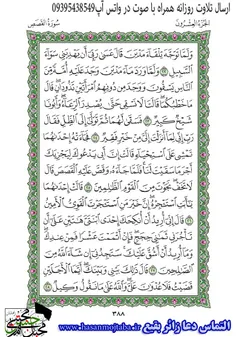 ارسال تلاوت روزانه همراه با صوت در واتس آپ09395438549
الجزء العشرون
سورة القصص
وَلَمَّا تَوَجَّهَ تِلْقَاءَ مَدْيَنَ قَالَ عَسَىٰ رَبِّي أَن يَهْدِيَنِي سَوَاءَ
السَّبِيلِ ٢٢ وَلَمَّا وَرَدَ مَاءَ مَدْيَنَ وَجَدَ عَلَيْهِ أُمَّةً مِّنَ
النَّاسِ يَسْقُونَ وَوَجَدَ مِن دُونِهِمُ امْرَأَتَيْنِ تَذُودَانِ قَالَ
مَا خَطْبُكُمَا قَالَتَا لَا نَسْقِي حَتَّىٰ يُصْدِرَ الرِّعَاءُ وَأَبُونَا
شَيْخٌ كَبِيرٌ ٢٣ فَسَقَىٰ لَهُمَا ثُمَّ تَوَلَّىٰ إِلَى الظِّلِّ فَقَالَ
رَبِّ إِنِّي لِمَا أَنزَلْتَ إِلَيَّ مِنْ خَيْرٍ فَقِيرٌ ٢٤ فَجَاءَتْهُ إِحْدَاهُمَا
تَمْشِي عَلَى اسْتِحْيَاءٍ قَالَتْ إِنَّ أَبِي يَدْعُوكَ لِيَجْزِيَكَ
أَجْرَ مَا سَقَيْتَ لَنَا فَلَمَّا جَاءَهُ وَقَصَّ عَلَيْهِ الْقَصَصَ قَالَ
لَا تَخَفْ نَجَوْتَ مِنَ الْقَوْمِ الظَّالِمِينَ ٢٥ قَالَتْ إِحْدَاهُمَا
يَا أَبَتِ اسْتَأْجِرْهُ إِنَّ خَيْرَ مَنِ اسْتَأْجَرْتَ الْقَوِيُّ الْأَمِينُ
٢٦ قَالَ إِنِّي أُرِيدُ أَنْ أُنكِحَكَ إِحْدَى ابْنَتَيَّ هَاتَيْنِ عَلَىٰ أَن
تَأْجُرَنِي ثَمَانِيَ حِجَجٍ فَإِنْ أَتْمَمْتَ عَشْرًا فَمِنْ عِندِكَ
وَمَا أُرِيدُ أَنْ أَشُقَّ عَلَيْكَ سَتَجِدُنِي إِن شَاءَ اللَّهُ مِنَ
الصَّالِحِينَ ٢٧ قَالَ ذَٰلِكَ بَيْنِي وَبَيْنَكَ أَيَّمَا الْأَجَلَيْنِ
قَضَيْتُ فَلَا عُدْوَانَ عَلَيَّ وَاللَّهُ عَلَىٰ مَا نَقُولُ وَكِيلٌ ٢٨
٣٨٨
التماس دعا زائر بقیع www.hasanmojtaba.ir